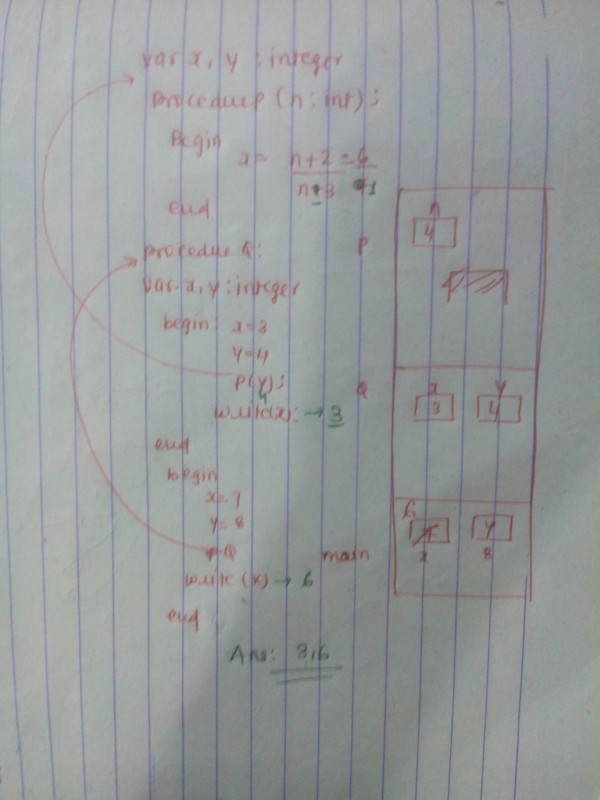 var x, y : integer
procedure P (n : int) ;
Begin
x = n+2 = 6
n+3
end
procedure Q :
var x, y : integer
begin : x = 3
y = 4
P(y) ;
4
write(x) : → 3
end
begin
x = 7
y = 8
Q
write (x) → 6
end
Ans: 3,6
P
n
4
Q
x y
3 4
main
6
7 y
x 8